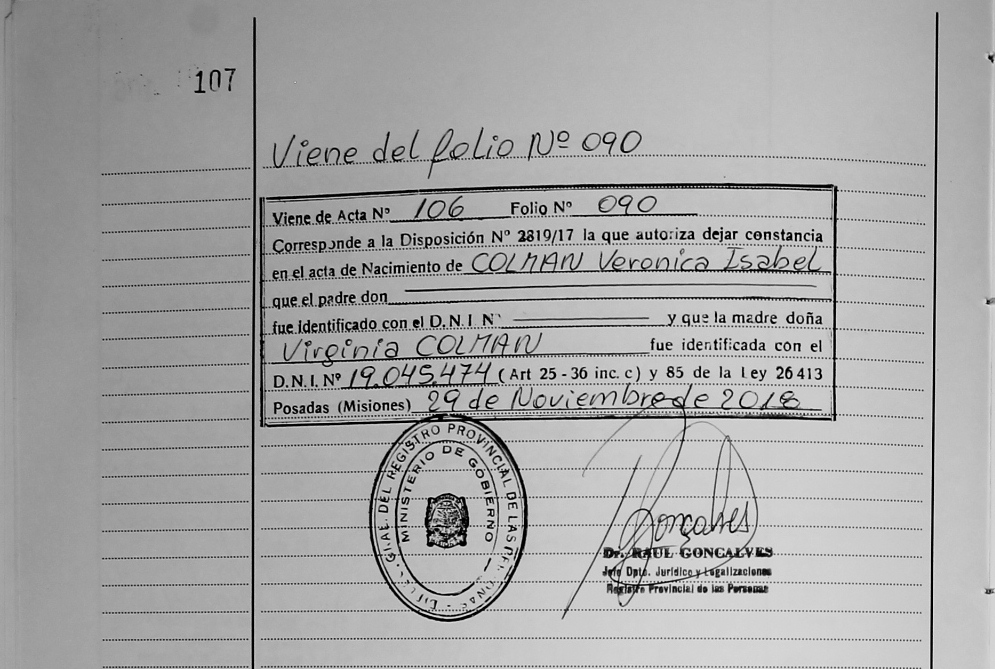 107
Viene del folio Nº 090
Viene de Acta Nº 106 Folio Nº 090
Corresponde a la Disposición Nº 2819/17 la que autoriza dejar constancia
en el acta de Nacimiento de COLMAN Veronica Isabel
que el padre don
fue identificado con el D.N.I N° y que la madre doña
Virginia COLMAN fue identificada con el
D.N.I. Nº 19.045.474 (Art 25 - 36 inc. c) y 85 de la Ley 26413
Posadas (Misiones) 29 de Noviembre de 2018
GRAL. DEL REGISTRO PROVINCIAL DE LAS PERSONAS
MINISTERIO DE GOBIERNO
Gonçalves
Dr. RAUL GONCALVES
Jefe Dpto. Jurídico y Legalizaciones
Registro Provincial de las Personas